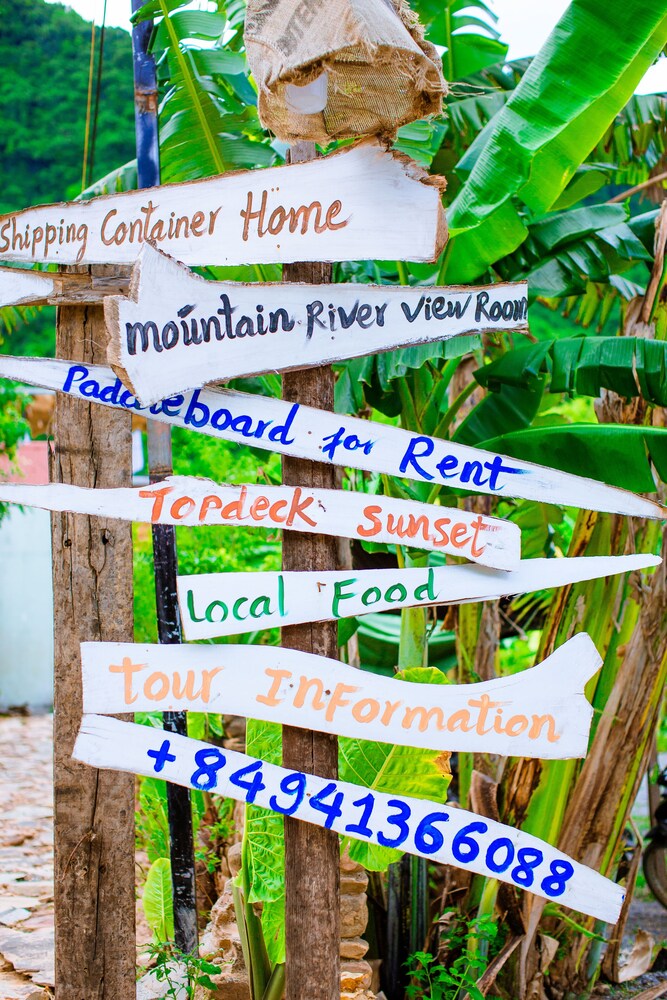 Shipping Container Home
mountain River view Room
Paddleboard for Rent
Topdeck sunset
Local Food
Tour Information
+84941366088